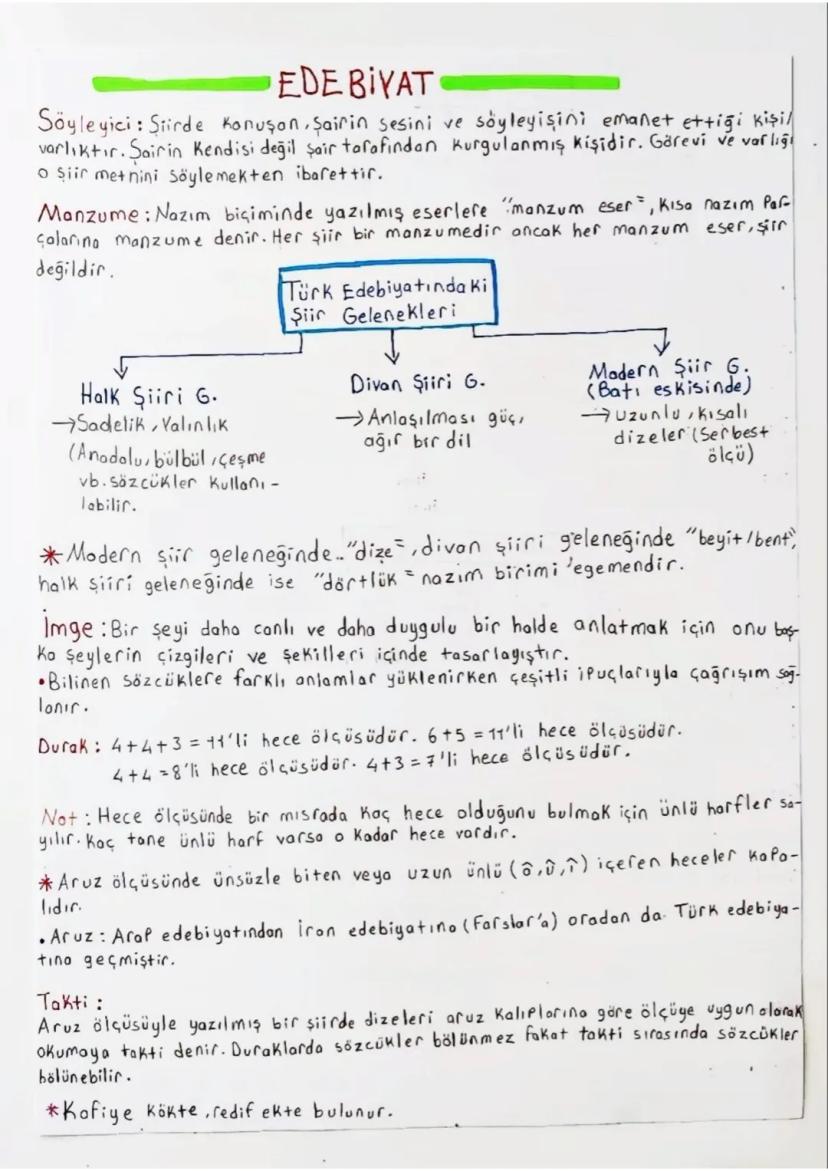 EDEBİYAT
Söyleyici : Şiirde konuşan, şairin sesini ve söyleyişini emanet ettiği kişi/
varlıktır. Şairin kendisi değil şair tarafından kurgulanmış kişidir. Görevi ve varlığı
o şiir metnini söylemekten ibarettir.
Manzume : Nazım biçiminde yazılmış eserlere "manzum eser", kısa nazım par-
çalarına manzume denir. Her şiir bir manzumedir ancak her manzum eser, şiir
değildir.
Türk Edebiyatındaki
Şiir Gelenekleri
Halk Şiiri G.
→ Sadelik, Yalınlık
(Anadolu, bülbül, çeşme
vb. sözcükler kullanı-
labilir.
Divan Şiiri G.
→ Anlaşılması güç,
ağır bir dil
Modern Şiir G.
(Batı eskisinde)
→ uzunlu, kısalı
dizeler (Serbest
ölçü)
* Modern şiir geleneğinde.. "dize", divan şiiri geleneğinde "beyit/bent",
halk şiiri geleneğinde ise "dörtlük" nazım birimi egemendir.
İmge : Bir şeyi daha canlı ve daha duygulu bir halde anlatmak için onu baş-
ka şeylerin çizgileri ve şekilleri içinde tasarlayıştır.
• Bilinen sözcüklere farklı anlamlar yüklenirken çeşitli ipuçlarıyla çağrışım sağ-
lanır.
Durak : 4+4+3 = 11'li hece ölçüsüdür. 6+5 = 11'li hece ölçüsüdür.
4+4 = 8'li hece ölçüsüdür. 4+3 = 7'li hece ölçüsüdür.
Not : Hece ölçüsünde bir mısrada kaç hece olduğunu bulmak için ünlü harfler sa-
yılır. Kaç tane ünlü harf varsa o kadar hece vardır.
* Aruz ölçüsünde ünsüzle biten veya uzun ünlü (â, û, î) içeren heceler kapa-
lıdır.
• Aruz : Arap edebiyatından İran edebiyatına (Farslar'a) oradan da Türk edebiya-
tına geçmiştir.
Takti :
Aruz ölçüsüyle yazılmış bir şiirde dizeleri aruz kalıplarına göre ölçüye uygun olarak
okumaya takti denir. Duraklarda sözcükler bölünmez fakat takti sırasında sözcükler
bölünebilir.
* Kafiye kökte, redif ekte bulunur.